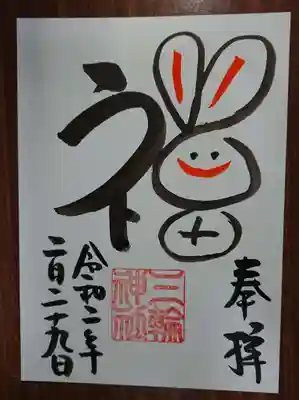 奉拝
福
三輪
神社
令和二年
二月二十九日